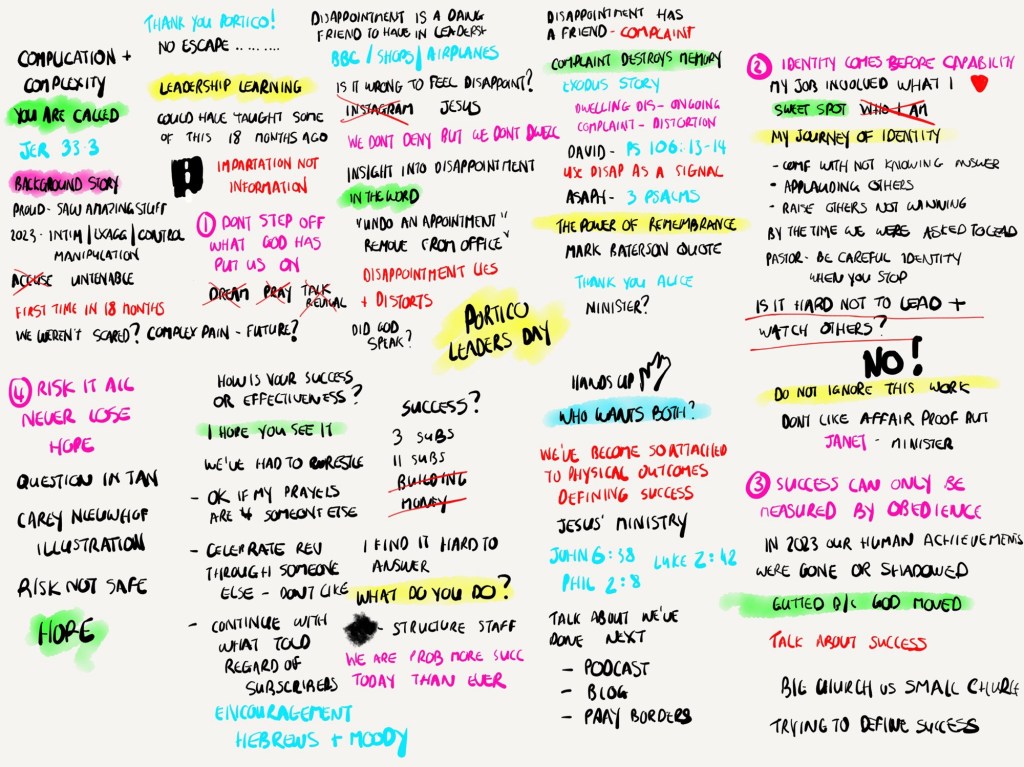 COMPLICATION +
COMPLEXITY
YOU ARE CALLED
JER 33:3
BACKGROUND STORY
PROUD - SAW AMAZING STUFF
2023 - INTIM / EXAGG / CONTROL
MANIPULATION
ACCUSE UNTENABLE
FIRST TIME IN 18 MONTHS
WE WEREN'T SCARED? COMPLEX PAIN - FUTURE?
THANK YOU PORTICO!
NO ESCAPE .......
LEADERSHIP LEARNING
COULD HAVE TAUGHT SOME
OF THIS 18 MONTHS AGO
IMPARTATION NOT
INFORMATION
① DONT STEP OFF
WHAT GOD HAS
PUT US ON
DREAM PRAY TALK
REVIVAL
DISAPPOINTMENT IS A DANG
FRIEND TO HAVE IN LEADERSH
BBC / SHOPS / AIRPLANES
IS IT WRONG TO FEEL DISAPPOINT?
INSTAGRAM JESUS
WE DONT DENY BUT WE DONT DWELL
INSIGHT INTO DISAPPOINTMENT
IN THE WORD
"UNDO AN APPOINTMENT"
REMOVE FROM OFFICE"
DISAPPOINTMENT LIES
+ DISTORTS
DID GOD
SPEAK?
PORTICO
LEADERS DAY
DISAPPOINTMENT HAS
A FRIEND - COMPLAINT
COMPLAINT DESTROYS MEMORY
EXODUS STORY
DWELLING DIS - ONGOING
COMPLAINT - DISTORTION
DAVID - PS 106:13-14
USE DISAP AS A SIGNAL
ASAPH - 3 PSALMS
THE POWER OF REMEMBRANCE
MARK BATERSON QUOTE
THANK YOU ALICE
NINISTER?
② IDENTITY COMES BEFORE CAPABILITY
MY JOB INVOLVED WHAT I
SWEET SPOT WHO I AM
MY JOURNEY OF IDENTITY
- COMF WITH NOT KNOWING ANSWER
- APPLAUDING OTHERS
- RAISE OTHERS NOT WINNING
BY THE TIME WE WERE ASKED TO LEAD
PASTOR - BE CAREFUL IDENTITY
WHEN YOU STOP
IS IT HARD NOT TO LEAD +
WATCH OTHERS?
NO!
DO NOT IGNORE THIS WORK
DON'T LIKE AFFAIR PROOF BUT
JANET - MINISTER
③ SUCCESS CAN ONLY BE
MEASURED BY OBEDIENCE
IN 2023 OUR HUMAN ACHIEVEMENTS
WERE GONE OR SHADOWED
GUTTED B/C GOD MOVED
TALK ABOUT SUCCESS
BIG CHURCH VS SMALL CHURCH
TRYING TO DEFINE SUCCESS
HANDS UP
WHO WANTS BOTH?
WE'VE BECOME SO ATTACHED
TO PHYSICAL OUTCOMES
DEFINING SUCCESS
JESUS' MINISTRY
JOHN 6:38 LUKE 2:42
PHIL 2:8
TALK ABOUT WE'VE
DONE NEXT
- PODCAST
- BLOG
- PRAY BORDERS
SUCCESS?
3 SUBS
11 SUBS
BUILDING
MONEY
I FIND IT HARD TO
ANSWER
WHAT DO YOU DO?
- STRUCTURE STAFF
WE ARE PROB MORE SUCC
TODAY THAN EVER
HOW IS YOUR SUCCESS
OR EFFECTIVENESS?
I HOPE YOU SEE IT
WE'VE HAD TO WRESTLE
- OK IF MY PRAYERS
ARE 4 SOMEONE ELSE
- CELEBRATE REV
THROUGH SOMEONE
ELSE - DON'T LIKE
- CONTINUE WITH
WHAT TOLD
REGARD OF
SUBSCRIBERS
ENCOURAGEMENT
HEBREWS + MOODY
④ RISK IT ALL
NEVER LOSE
HOPE
QUESTION IN TAN
CAREY NIEUWHOF
ILLUSTRATION
RISK NOT SAFE
HOPE